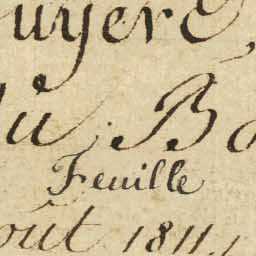 uyere,
du B
Feuille
out 1811,